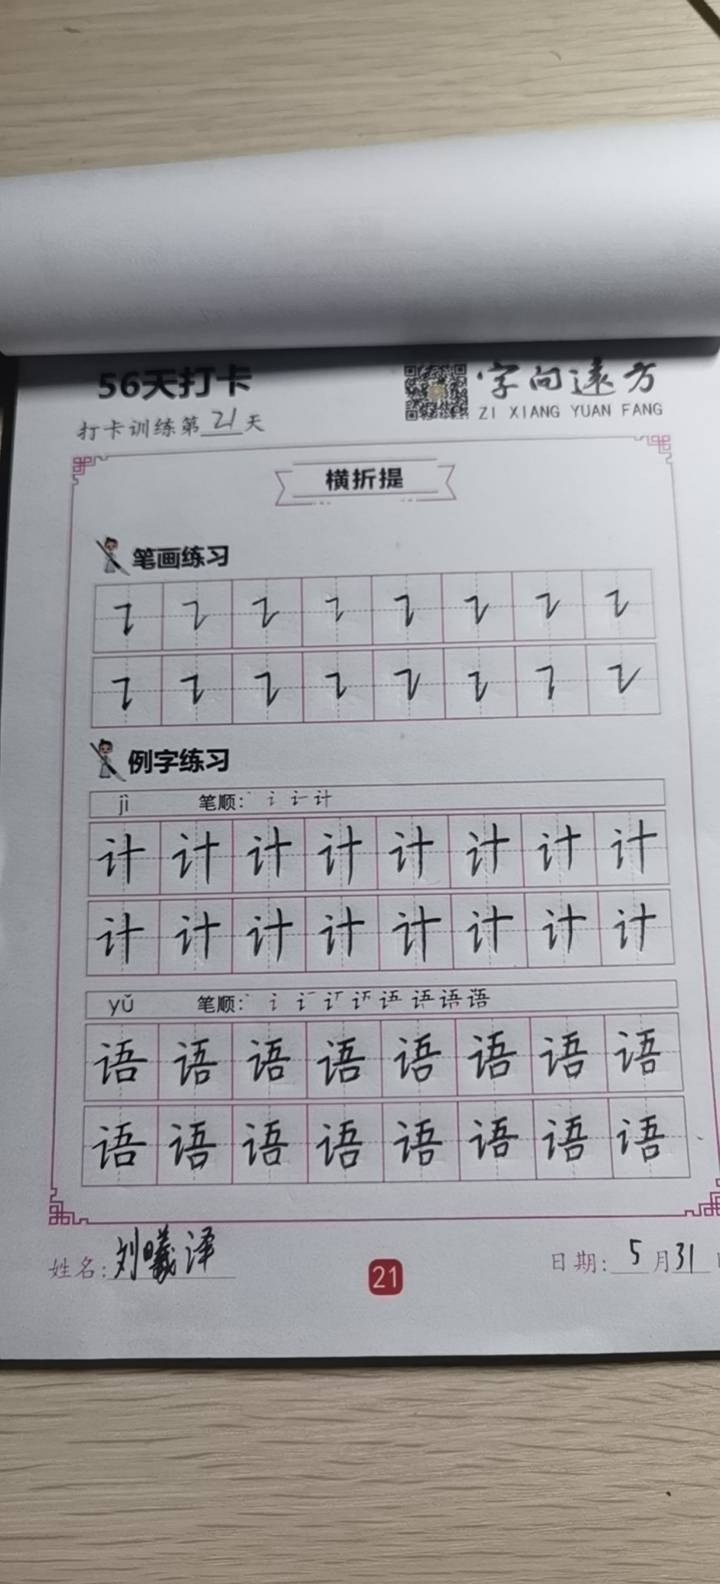 56天打卡
字向远方
ZI XIANG YUAN FANG
打卡训练第21天
横折提
笔画练习
例字练习
jì 笔顺: 计
计计计计计计计计
计计计计计计计计
yǔ 笔顺: 语
语语语语语语语语
语语语语语语语语
姓名:刘曦泽
21
日期:5月31